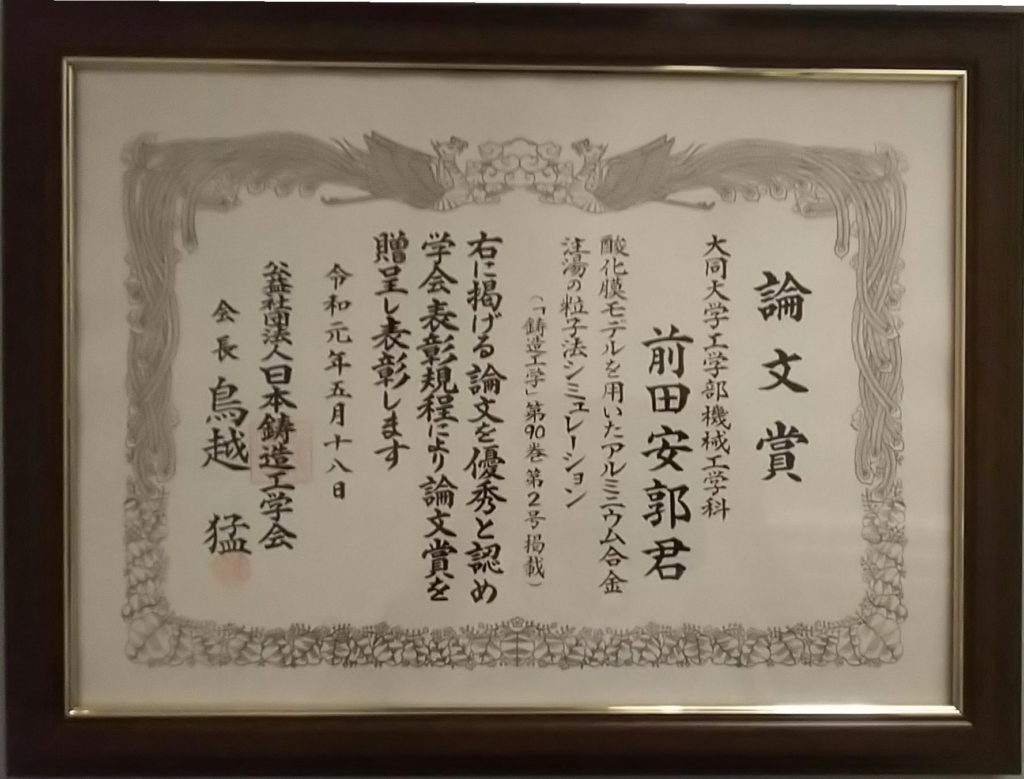 論文賞
大同大学工学部機械工学科
前田安郭君
酸化膜モデルを用いたアルミニウム合金
注湯の粒子法シミュレーション
（「鋳造工学」第90巻第2号掲載）
右に掲げる論文を優秀と認め
学会表彰規程により論文賞を
贈呈し表彰します
令和元年五月十八日
公益社団法人日本鋳造工学会
会長 鳥越 猛